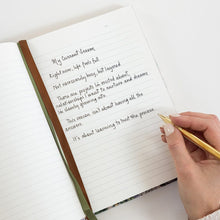 My Current Season
Right now, life feels full
Not necessarily busy, but layered
There are projects I'm excited about
relationships I want to nurture and dreams
slowly growing into.
This season isn't about having all the
answers.
It's about learning to trust the process.